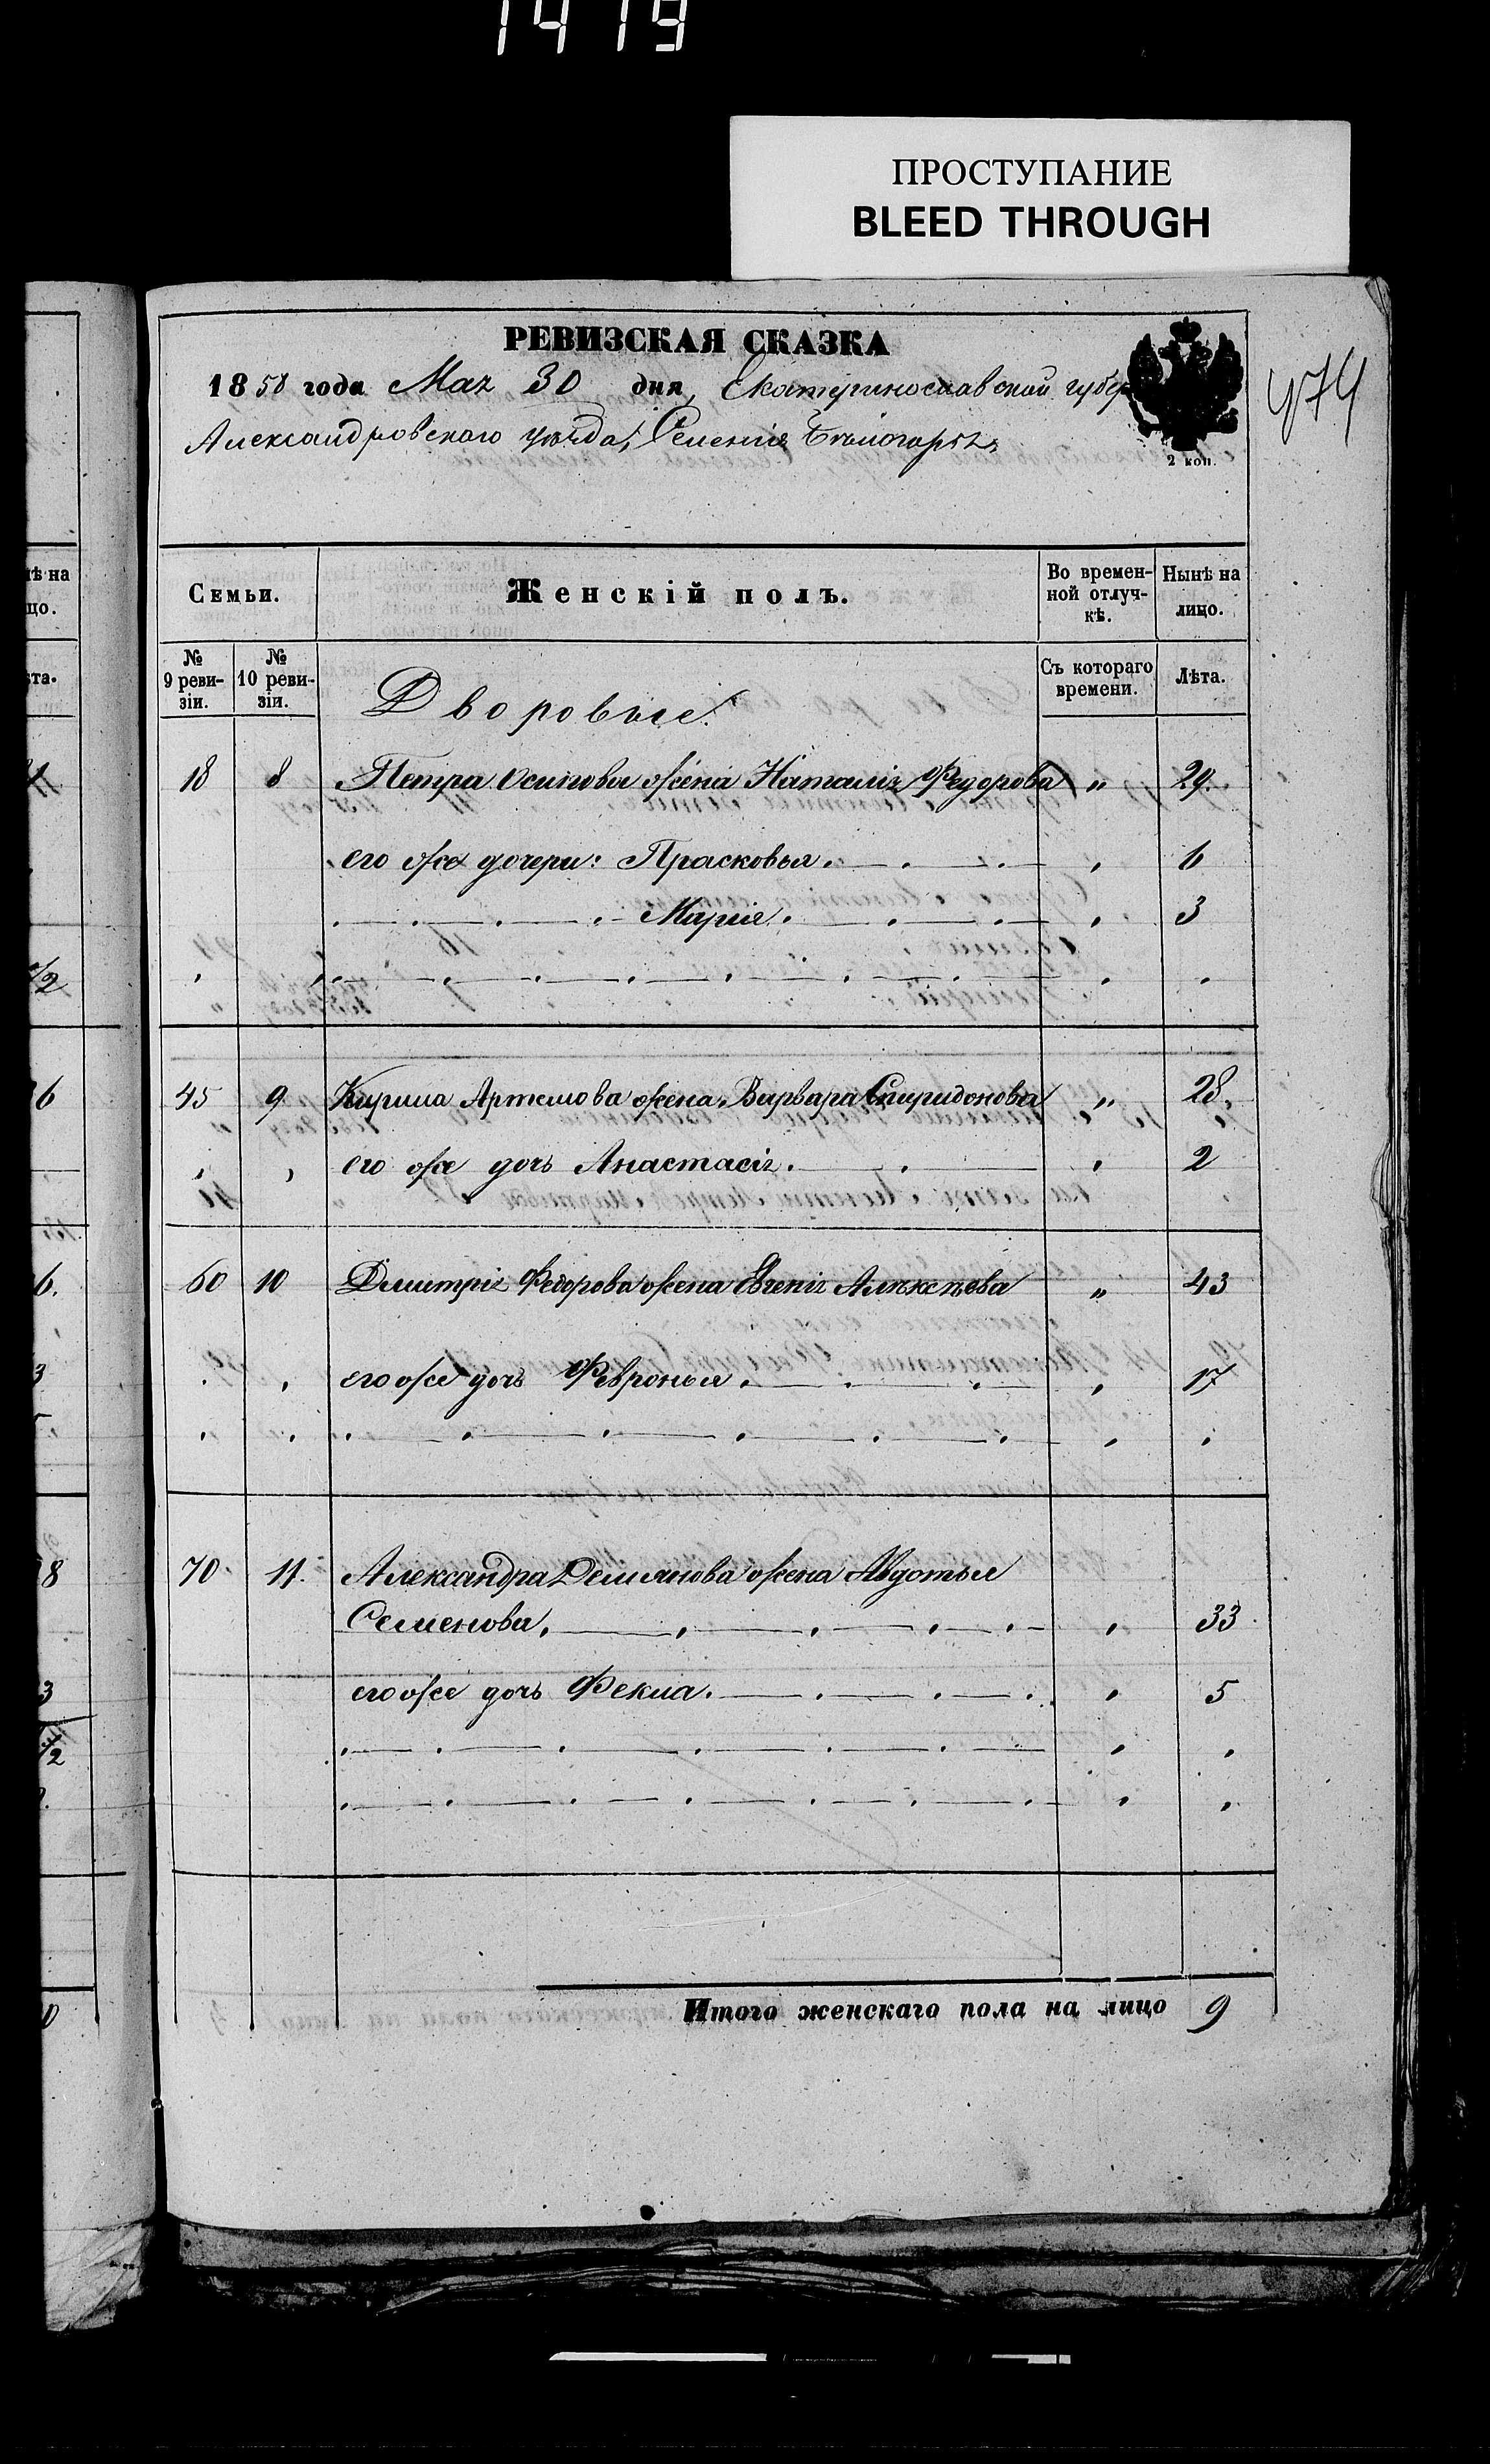 1419
ПРОСТУПАНИЕ
BLEED THROUGH
РЕВИЗСКАЯ СКАЗКА
1858 года Мая 30 дня, Екатеринославской губер
Александровского уѣзда, Селенія Бѣлогорья
2 коп.
974
Семьи.
Женскій полъ.
Во времен-
ной отлуч-
кѣ.
Нынѣ на
лицо.
№
9 реви-
зіи.
№
10 реви-
зіи.
Съ котораго
времени.
Лѣта.
Дворовые.
18 8 Петра Осипова жена Наталія Федорова " 29.
его же дочери: Прасковья. 6
Марія. 3
45 9 Кирила Артемова жена Варвара Спиридонова " 28.
его же дочь Анастасія. 2
60 10 Дмитрія Федорова жена Евгенія Алексѣева " 43
его же дочь Февронья. 17
70. 11. Александра Демьянова жена Авдотья
Семенова, 33
его же дочь Фекла. 5
Итого женскаго пола на лицо 9